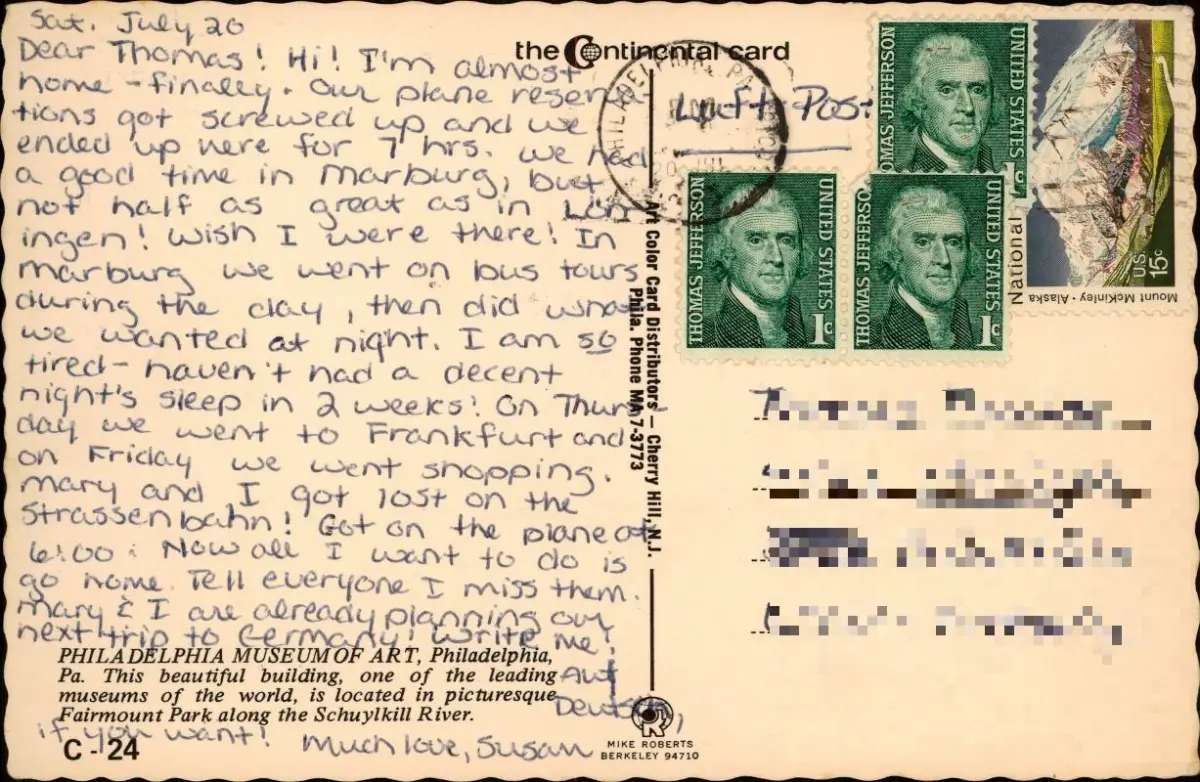 Sat. July 20
Dear Thomas! Hi! I'm almost
home - finally. Our plane reserva-
tions got screwed up and we
ended up here for 7 hrs. We had
a good time in Marburg, but
not half as great as in Lön-
ingen! Wish I were there! In
Marburg we went on bus tours
during the day, then did what
we wanted at night. I am so
tired - haven't had a decent
night's sleep in 2 weeks! On Thurs-
day we went to Frankfurt and
on Friday we went shopping.
Mary and I got lost on the
Strassenbahn! Got on the plane at
6:00. Now all I want to do is
go home. Tell everyone I miss them.
Mary & I are already planning our
next trip to Germany! Write me!
Auf
Deutsch,
if you want! Much love, Susan
PHILADELPHIA MUSEUM OF ART, Philadelphia,
Pa. This beautiful building, one of the leading
museums of the world, is located in picturesque
Fairmount Park along the Schuylkill River.
C-24
the Continental card
Art Color Card Distributors — Cherry Hill, N.J.
Phila. Phone MA 7-3773
MIKE ROBERTS
BERKELEY 94710
Luft Post
PHILADELPHIA, PA
THOMAS JEFFERSON
UNITED STATES
1c
THOMAS JEFFERSON
UNITED STATES
1c
THOMAS JEFFERSON
UNITED STATES
1c
National
U.S.
15c
Mount McKinley · Alaska